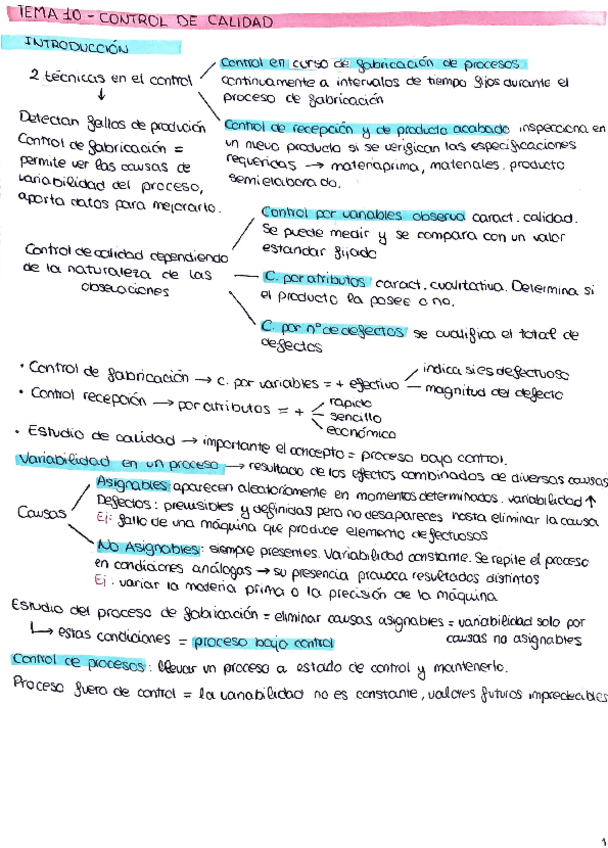 TEMA 10 - CONTROL DE CALIDAD
INTRODUCCIÓN
2 técnicas en el control
Control en curso de fabricación de procesos
continuamente a intervalos de tiempo fijos durante el
proceso de fabricación
Control de recepción y de producto acabado inspecciona en
un nuevo producto si se verifican las especificaciones
requeridas → materia prima, materiales. producto
semielaborado.
↓
Detectan fallos de produción
Control de fabricación =
permite ver las causas de
variabilidad del proceso,
aporta datos para mejorarlo.
Control de calidad dependiendo
de la naturaleza de las
obsevaciones
Control por variables observa caract. calidad.
Se puede medir y se compara con un valor
estandar fijado
C. por atributos caract. cualitativa. Determina si
el producto la posee o no.
C. por nº de defectos se cualifica el total de
defectos
• Control de fabricación → c. por variables = + efectivo
indica si es defectuoso
magnitud del defecto
• Control recepción → por atributos = +
rapido
sencillo
económico
• Estudio de calidad → importante el concepto = proceso bajo control.
Variabilidad en un proceso → resultado de los efectos combinados de diversas causas
Causas
Asignables: aparecen aleatoriamente en momentos determinados. variabilidad ↑
Defectos: previsibles y definidas pero no desapareces hasta eliminar la causa
Ej: fallo de una máquina que produce elemento defectuosos
No Asignables: siempre presentes. Variabilidad constante. Se repite el proceso
en condiciones análogas → su presencia provoca resultados distintos
Ej: variar la materia prima o la precisión de la máquina
Estudio del proceso de fabricación = eliminar causas asignables = variabilidad solo por
causas no asignables
↳ estas condiciones = proceso bajo control
Control de procesos: llevar un proceso a estado de control y mantenerlo.
Proceso fuera de control = la variabilidad no es constante, valores futuros impredecibles
1